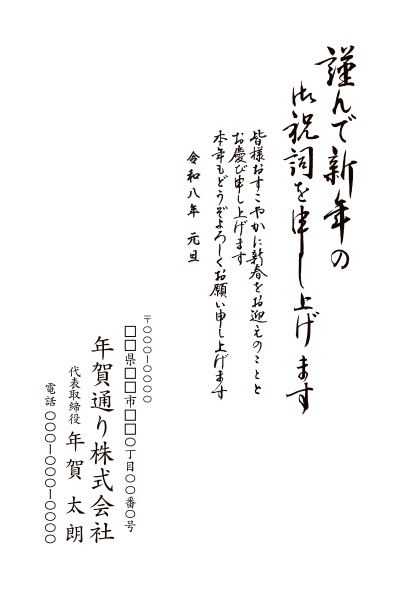 謹んで新年の
御祝詞を申し上げます
皆様おすこやかに新春をお迎えのことと
お慶び申し上げます
本年もどうぞよろしくお願い申し上げます
令和八年 元旦
〒○○○-○○○○
□□県□□市□□○丁目○○番○号
年賀通り株式会社
代表取締役 年賀 太朗
電話 ○○○-○○○-○○○○